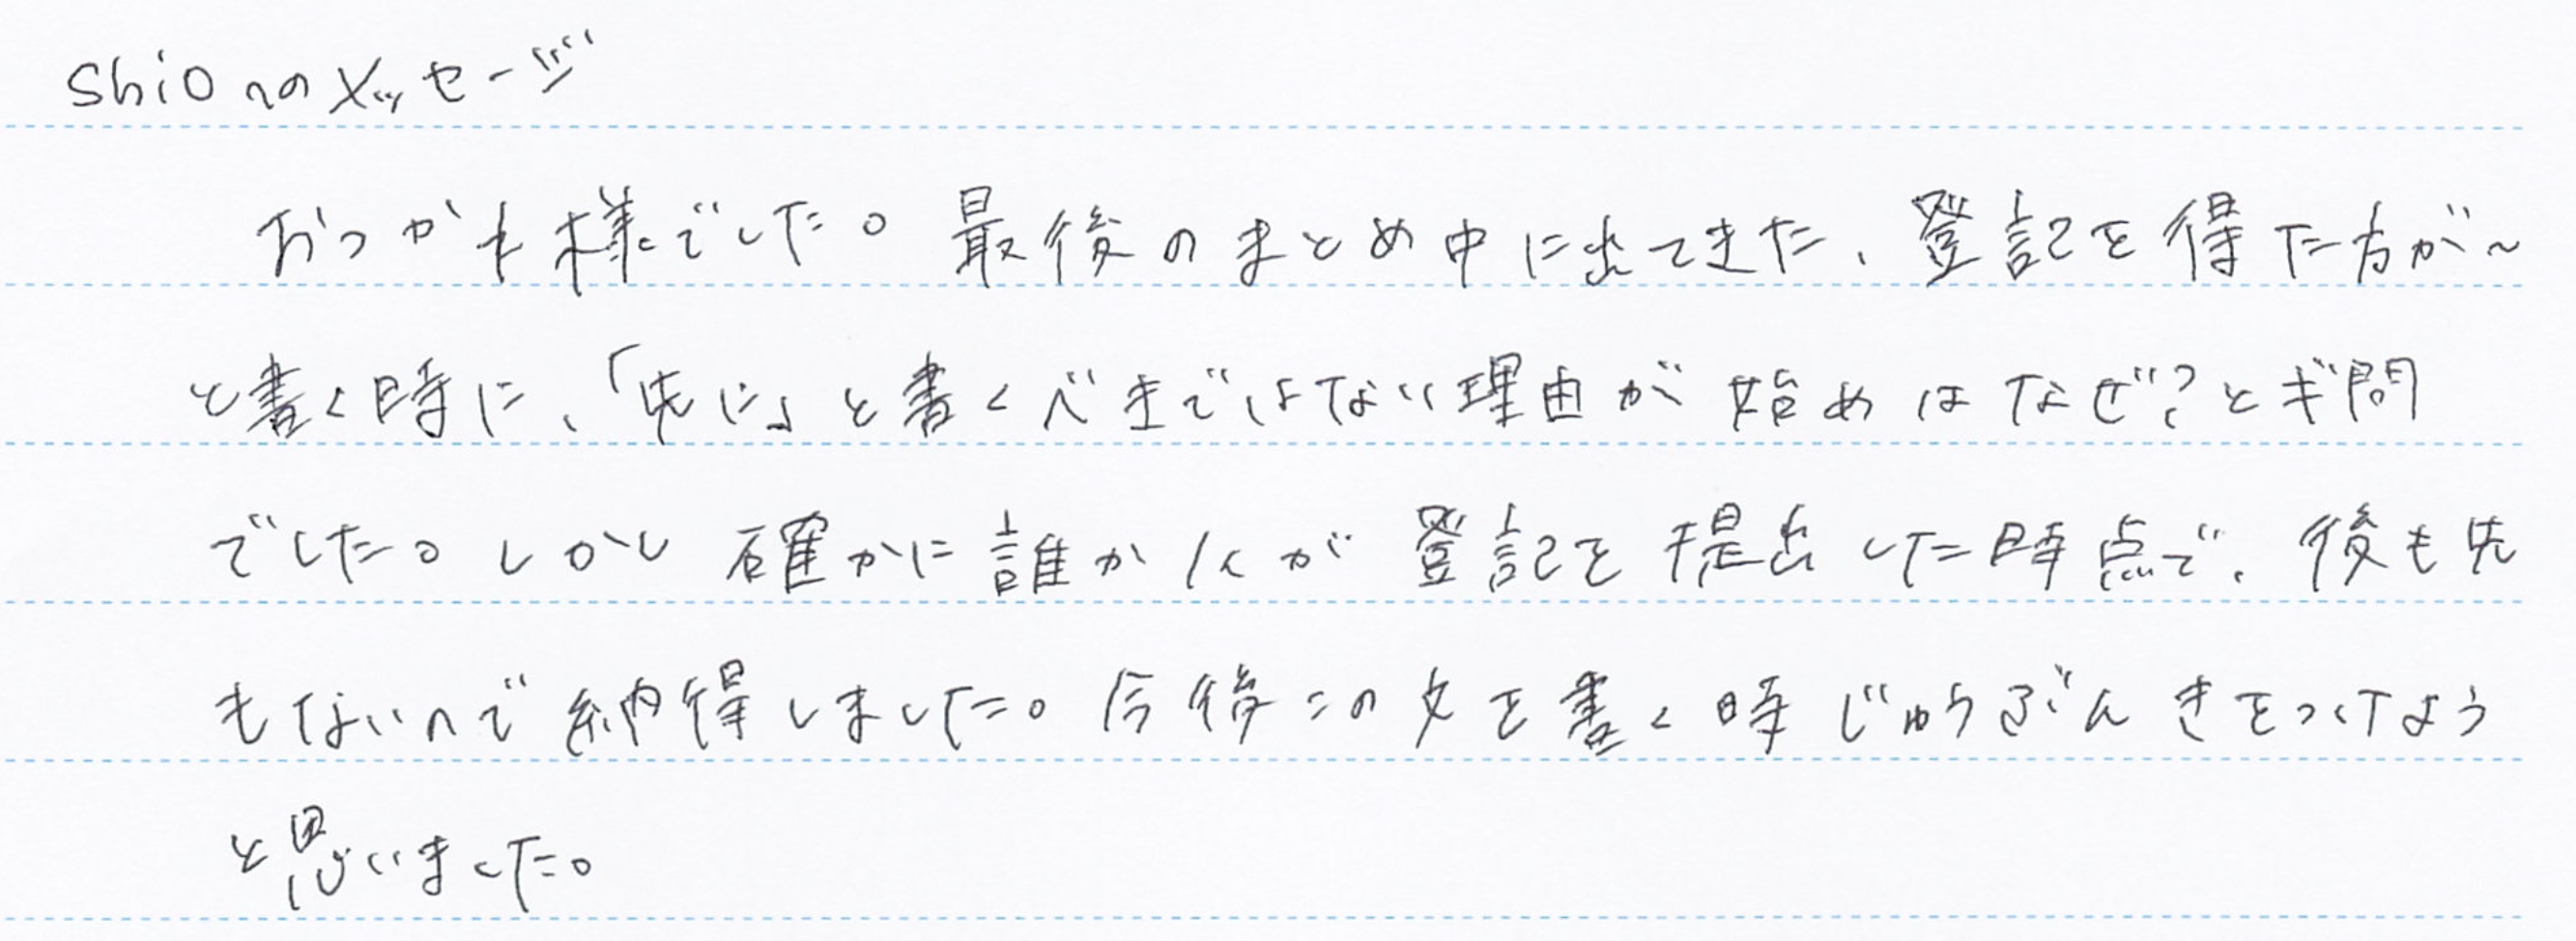 Shioへのメッセージ
おつかれ様でした。最後のまとめ中に出てきた、登記を得た方が〜
と書く時に、「先に」と書くべきではない理由が始めはなぜ?とギ問
でした。しかし確かに誰か1人が登記を提出した時点で、後も先
もないので納得しました。今後この文を書く時じゅうぶんきをつけよう
と思いました。